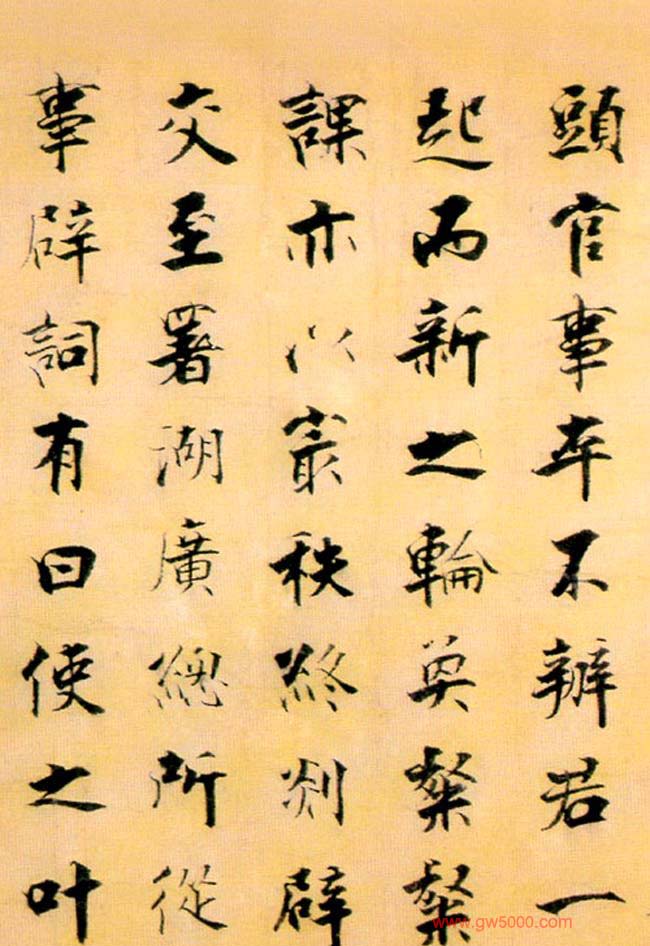 頭官事卒不辦若一
起而新之輪奐粲粲
課亦以最秩終剡辟
交至署湖廣總所從
事辟詞有曰使之叶
www.gw5000.com